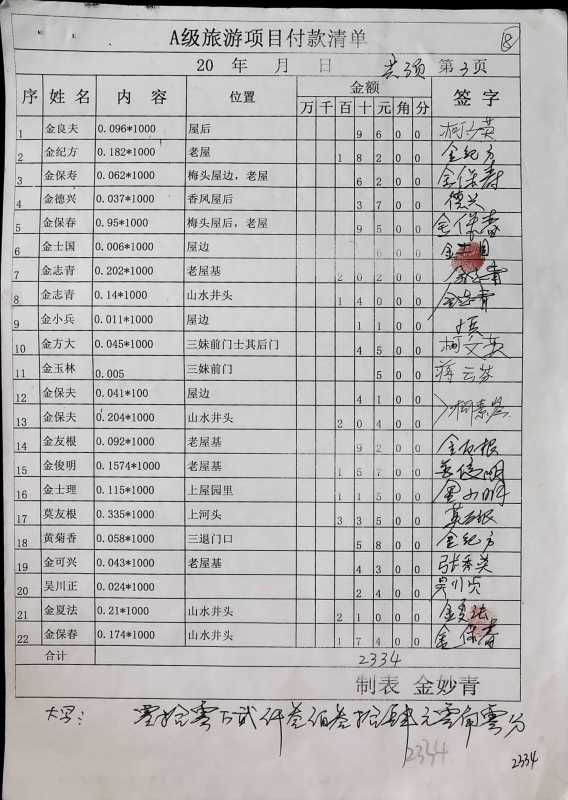 A级旅游项目付款清单 ⑧
20 年 月 日 共 页 第3页
序 姓名 内容 位置 金额 签字
万 千 百 十 元 角 分
1 金良夫 0.096*1000 屋后 9 6 0 0 柯文英
2 金纪方 0.182*1000 老屋 1 8 2 0 0 金纪方
3 金保寿 0.062*1000 梅头屋边，老屋 6 2 0 0 金保寿
4 金德兴 0.037*1000 香风屋后 3 7 0 0 德兴
5 金保春 0.95*1000 梅头屋后，老屋 9 5 0 0 金保春
6 金士国 0.006*1000 屋边 6 0 0 金士国
7 金志青 0.202*1000 老屋基 2 0 2 0 0 金志青
8 金志青 0.14*1000 山水井头 1 4 0 0 0 金志青
9 金小兵 0.011*1000 屋边 1 1 0 0 小兵
10 金方大 0.045*1000 三妹前门士其后门 4 5 0 0 柯文英
11 金玉林 0.005 三妹前门 5 0 0 蒋云芬
12 金保夫 0.041*100 屋边 4 1 0 0
13 金保夫 0.204*1000 山水井头 2 0 4 0 0 柯素
14 金友根 0.092*1000 老屋基 9 2 0 0 金友根
15 金俊明 0.1574*1000 老屋基 1 5 7 0 0 金俊明
16 金士理 0.115*1000 上屋园里 1 1 5 0 0 金小明
17 莫友根 0.335*1000 上河头 3 3 5 0 0 莫友根
18 黄菊香 0.058*1000 三退门口 5 8 0 0 金纪方
19 金可兴 0.043*1000 老屋基 4 3 0 0 张秀英
20 吴川正 0.024*1000 2 4 0 0 吴川贞
21 金夏法 0.21*1000 山水井头 2 1 0 0 0 金夏法
22 金保春 0.174*1000 山水井头 1 7 4 0 0 金保春
合计 2334
制表 金妙青
大写： 零拾零万贰仟叁佰叁拾肆元零角零分
2334
2334